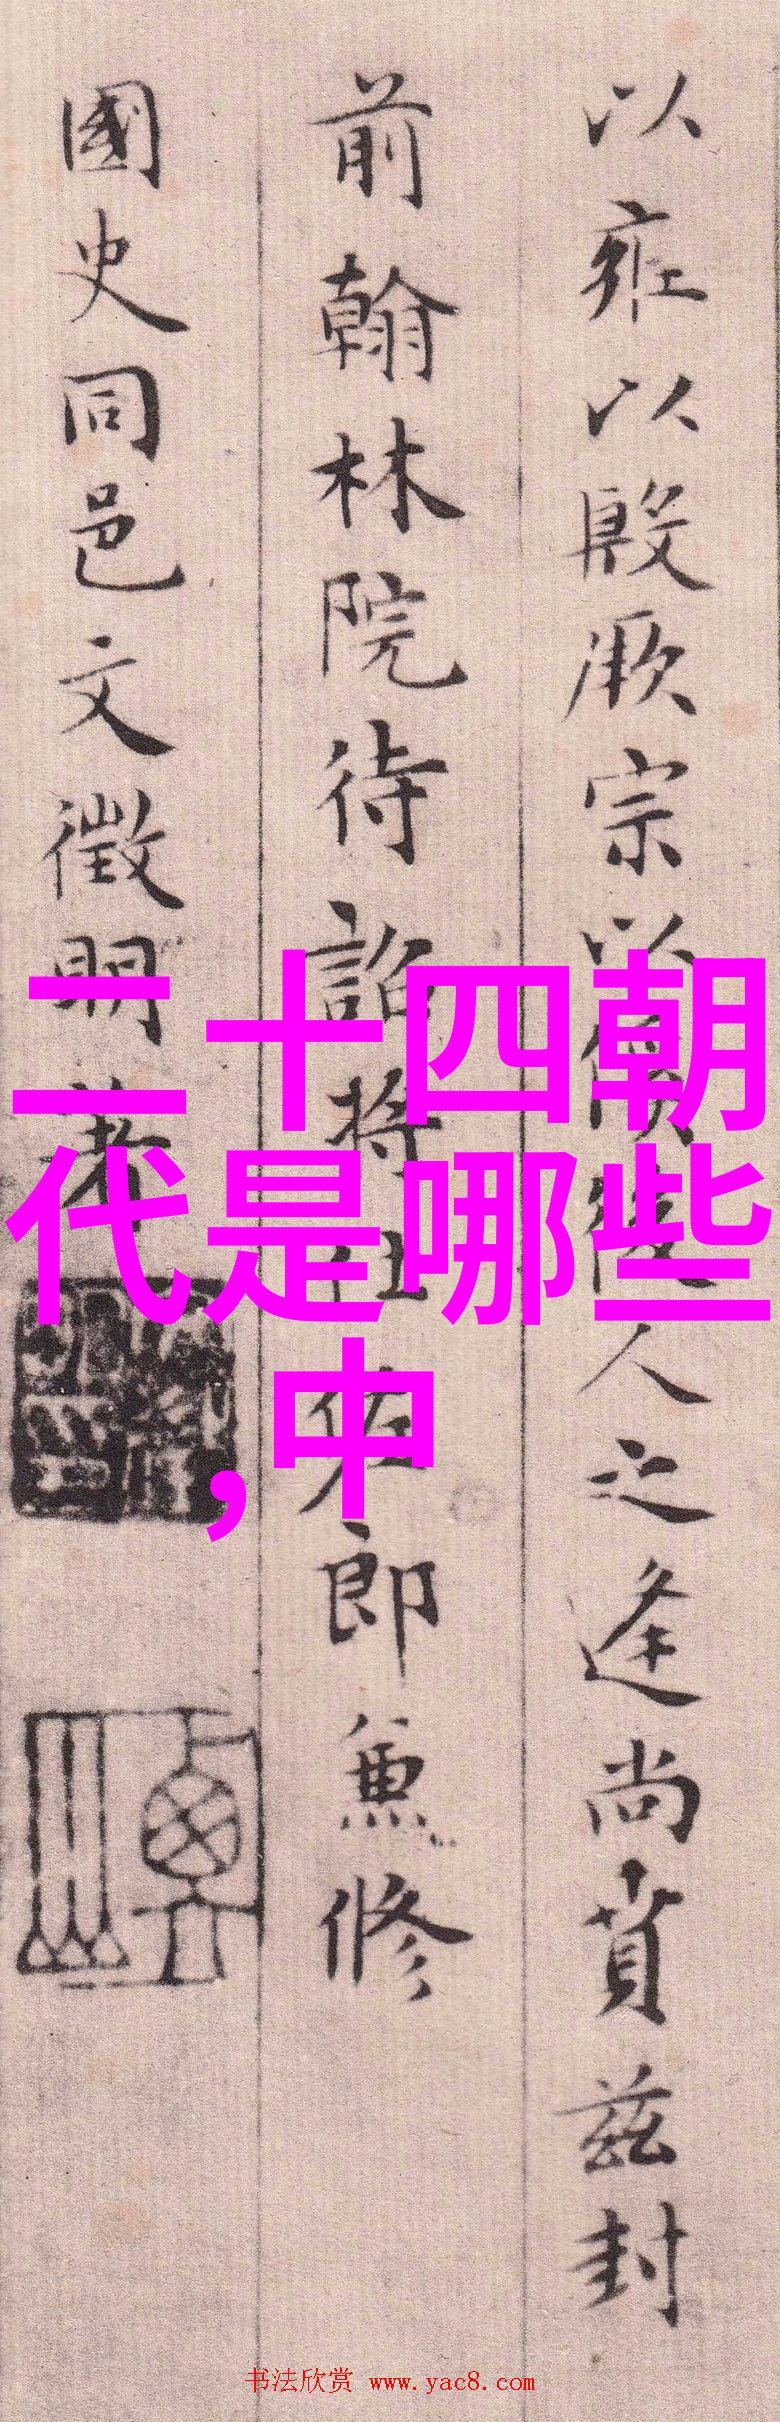 以雍以殷厥宗以俟後人之逢尚賁茲封
前翰林院待詔將仕佐郎兼修
國史同邑文徵明著
二十四朝
代是哪些
,中
书法欣赏 www.yac8.com